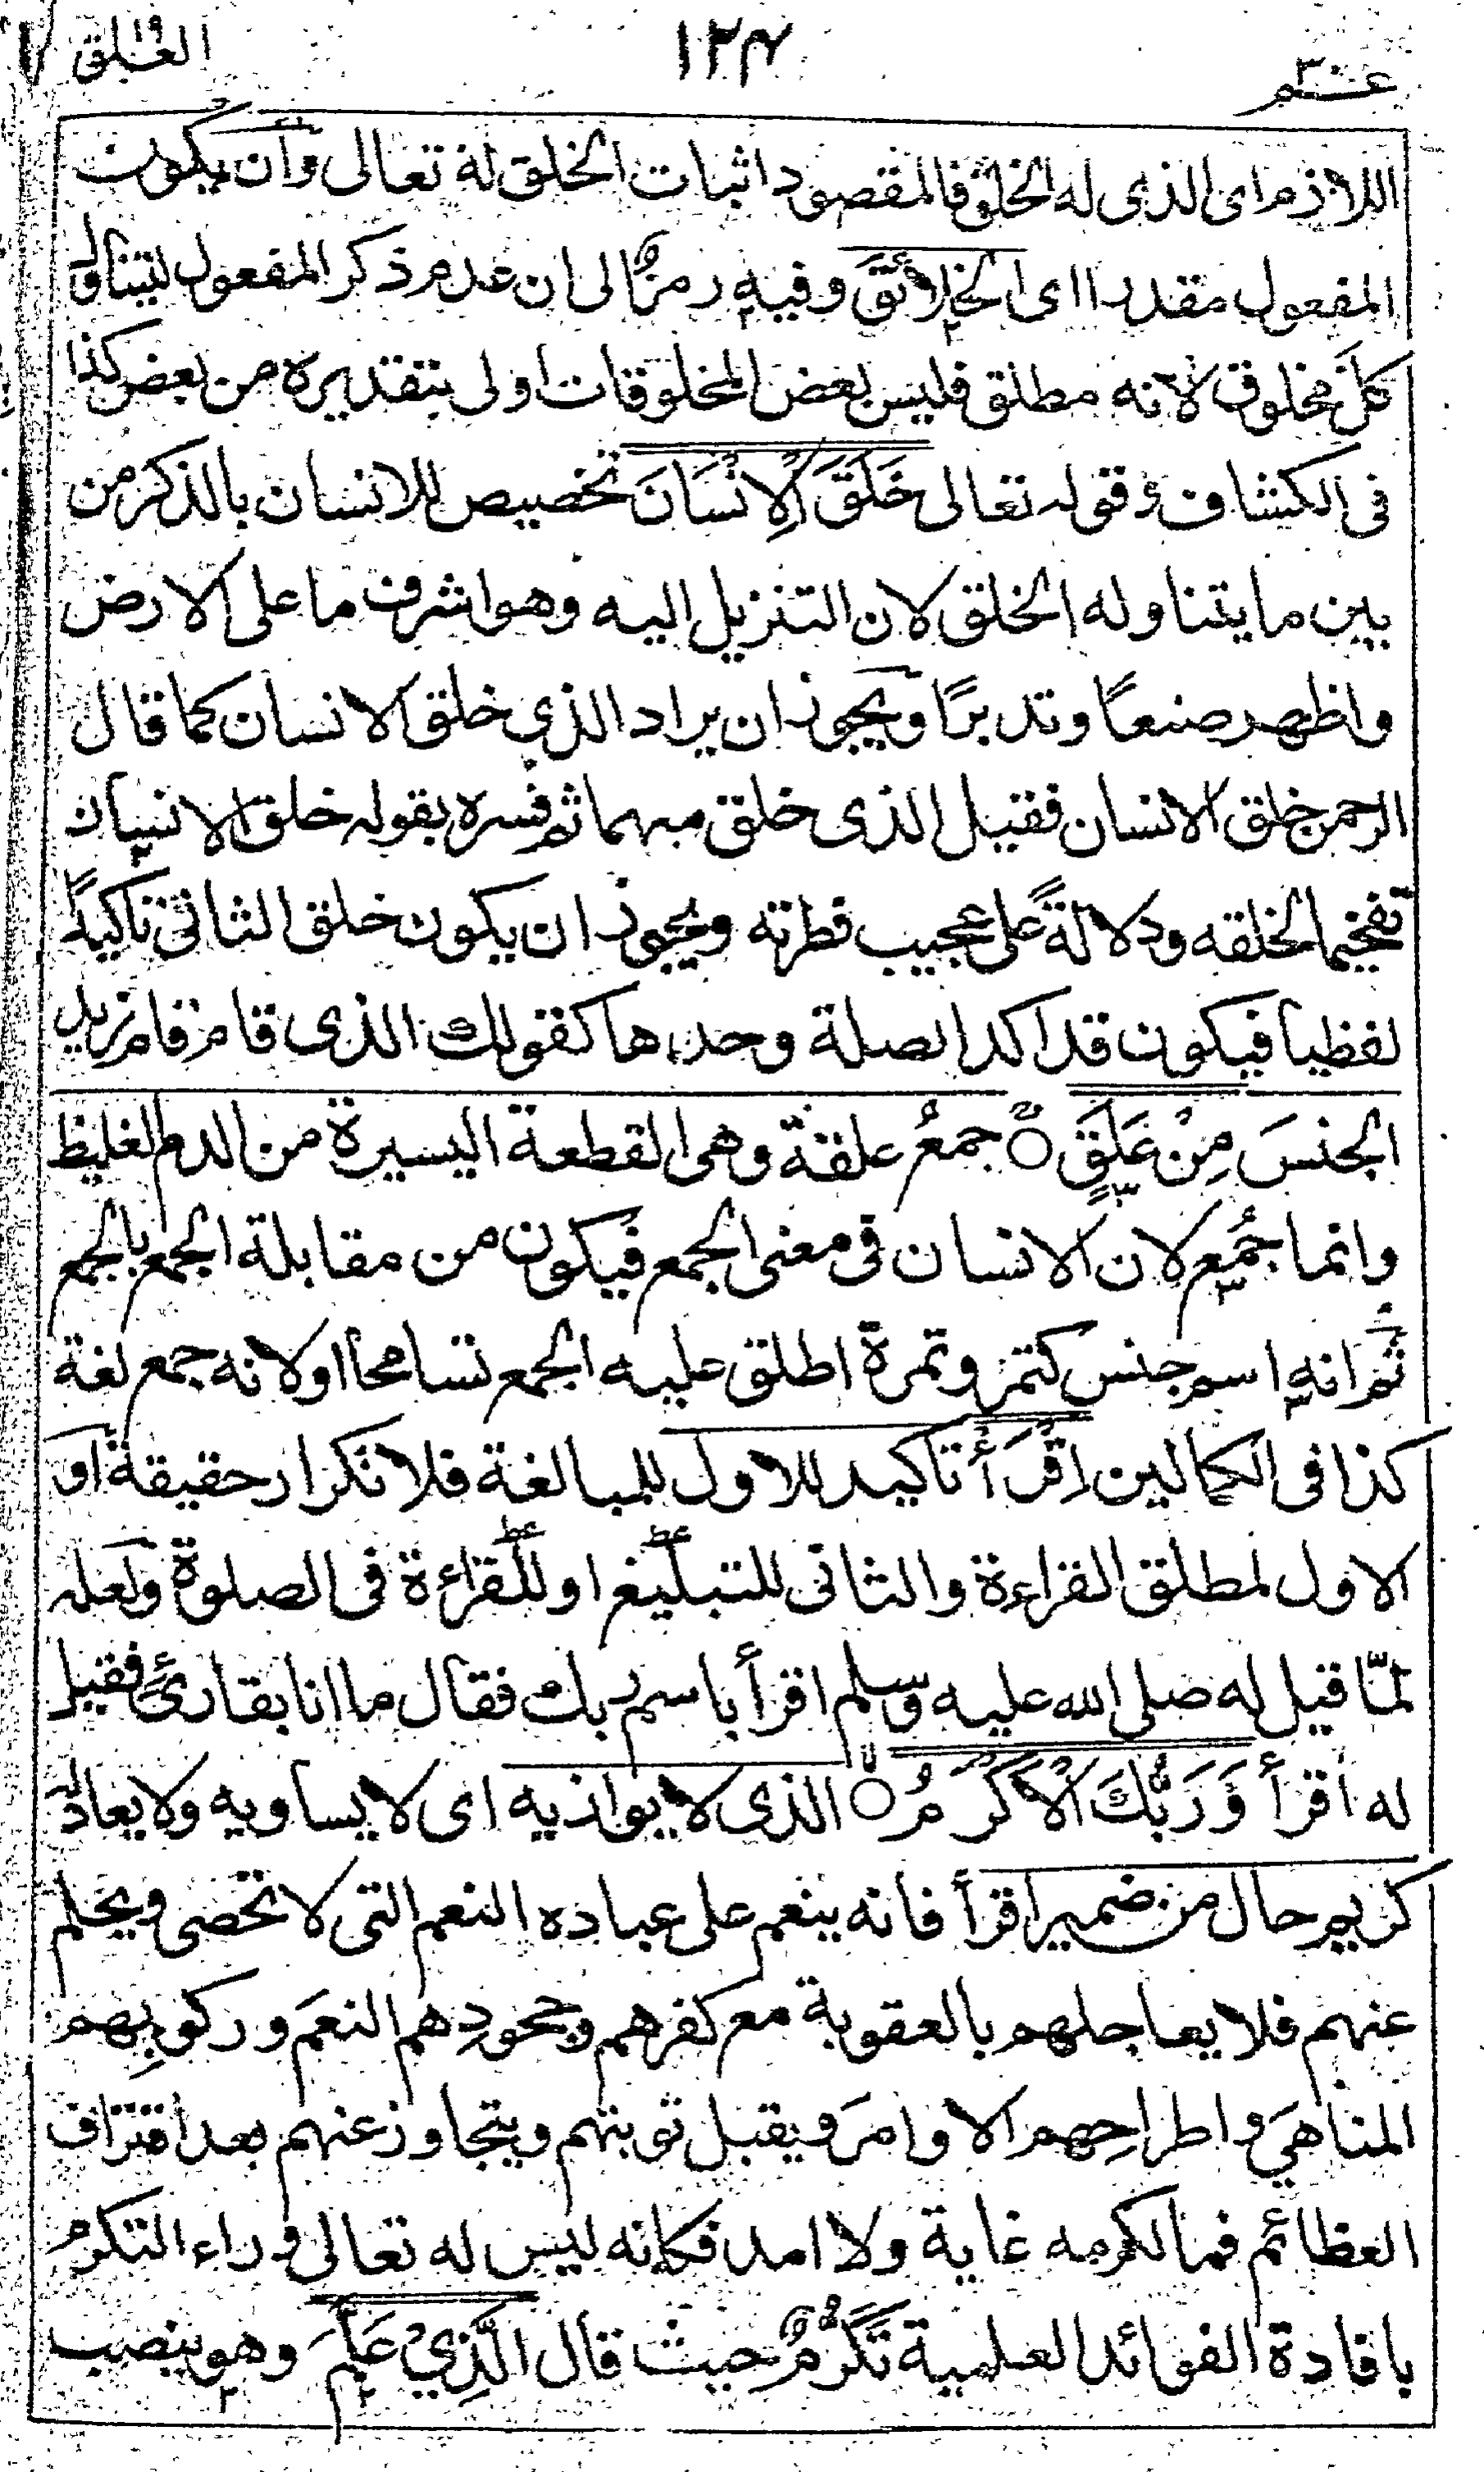 عم ٣٠
١٢٤
العلق ٩٦
اللازم اى الذى له الخلق فالمقصود اثبات الخلق له تعالى وان يكون
المفعول مقدرا اى الخلائق وفيه رمز الى ان عدم ذكر المفعول ليتناول
كل مخلوق لانه مطلق فليس بعض المخلوقات اولى بتقديره من بعض كذا
فى الكشاف وقوله تعالى خَلَقَ الْاِنْسَانَ تخصيص للانسان بالذكر من
بين ما يتناوله الخلق لان التنزيل اليه وهو اشرف ما على الارض
واظهر صنعًا وتدبرًا ويجوز ان يراد الذى خلق الانسان كما قال
الرحمن خلق الانسان فقيل الذى خلق مبهما ثم فسره بقوله خلق الانسان
تفخيما لخلقه ودلالةً على عجيب فطرته ويجوز ان يكون خلق الثانى تاكيدًا
لفظيا فيكون قد اكد الصلة وحدها كقولك الذى قام قام زيد
الجنسَ مِنْ عَلَقٍ ○ جمعُ علقة وهى القطعة اليسيرة من الدم الغليظ
وانما جُمِع لان الانسان فى معنى الجمع فيكون من مقابلة الجمع بالجمع
ثم انه اسم جنس كتمر وتمرة اطلق عليه الجمع تسامحا او لانه جمع لغة
كذا فى الكمالين اِقْرَأْ تاكيد للاول للمبالغة فلا تكرار حقيقة او
الاول لمطلق القراءة والثانى للتبليغ او للقراءة فى الصلوة ولعله
لمّا قيل له صلى الله عليه وسلم اقرأ باسم ربك فقال ما انا بقارئ فقيل
له اقرأ وَرَبُّكَ الْاَكْرَمُ ○ الذى لا يوازيه اى لا يساويه ولا يعادله
كريم حال من ضمير اقرأ فانه ينعم على عباده النعم التى لا تحصى ويحلم
عنهم فلا يعاجلهم بالعقوبة مع كفرهم وجحودهم النعمَ وركوبِهم
المناهيَ واطراحِهم الاوامرَ ويقبل توبتهم ويتجاوز عنهم بعد اقتراف
العظائم فما لكرمه غاية ولا امد فكانه ليس له تعالى وراء التكرم
بافادة الفوائد العلمية تَكَرُّمٌ حيث قال الَّذِيْ عَلَّمَ وهو ينصب